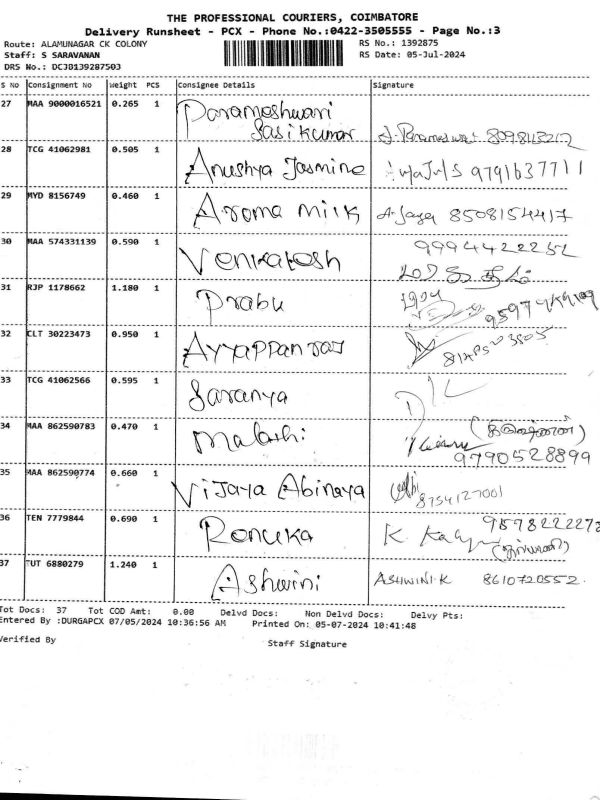 THE PROFESSIONAL COURIERS, COIMBATORE
Delivery Runsheet - PCX - Phone No.:0422-3505555 - Page No.:3
Route: ALAMUNAGAR CK COLONY RS No.: 1392875
Staff: S SARAVANAN RS Date: 05-Jul-2024
DRS No.: DCJ0139287503
S No Consignment No Weight PCS Consignee Details Signature
27 MAA 9000016521 0.265 1 Parameshwari
Sasikumar
28 TCG 41062981 0.505 1 Anushya Jasmine 9791637711
29 MYD 8156749 0.460 1 Aroma Milk A. Jaya 8508154417
30 MAA 574331139 0.590 1 Venkatesh 9994422252
31 RJP 1178662 1.180 1 Prabu
32 CLT 30223473 0.950 1 Ayyappan raj
33 TCG 41062566 0.595 1 Saranya
34 MAA 862590783 0.470 1 Malathi
9790528899
35 MAA 862590774 0.660 1 Vijaya Abinaya 8754127001
36 TEN 7779844 0.690 1 Renuka K
37 TUT 6880279 1.240 1 Ashwini ASHWINI.K 8610720552.
Tot Docs: 37 Tot COD Amt: 0.00 Delvd Docs: Non Delvd Docs: Delvy Pts:
Entered By :DURGAPCX 07/05/2024 10:36:56 AM Printed On: 05-07-2024 10:41:48
Verified By Staff Signature